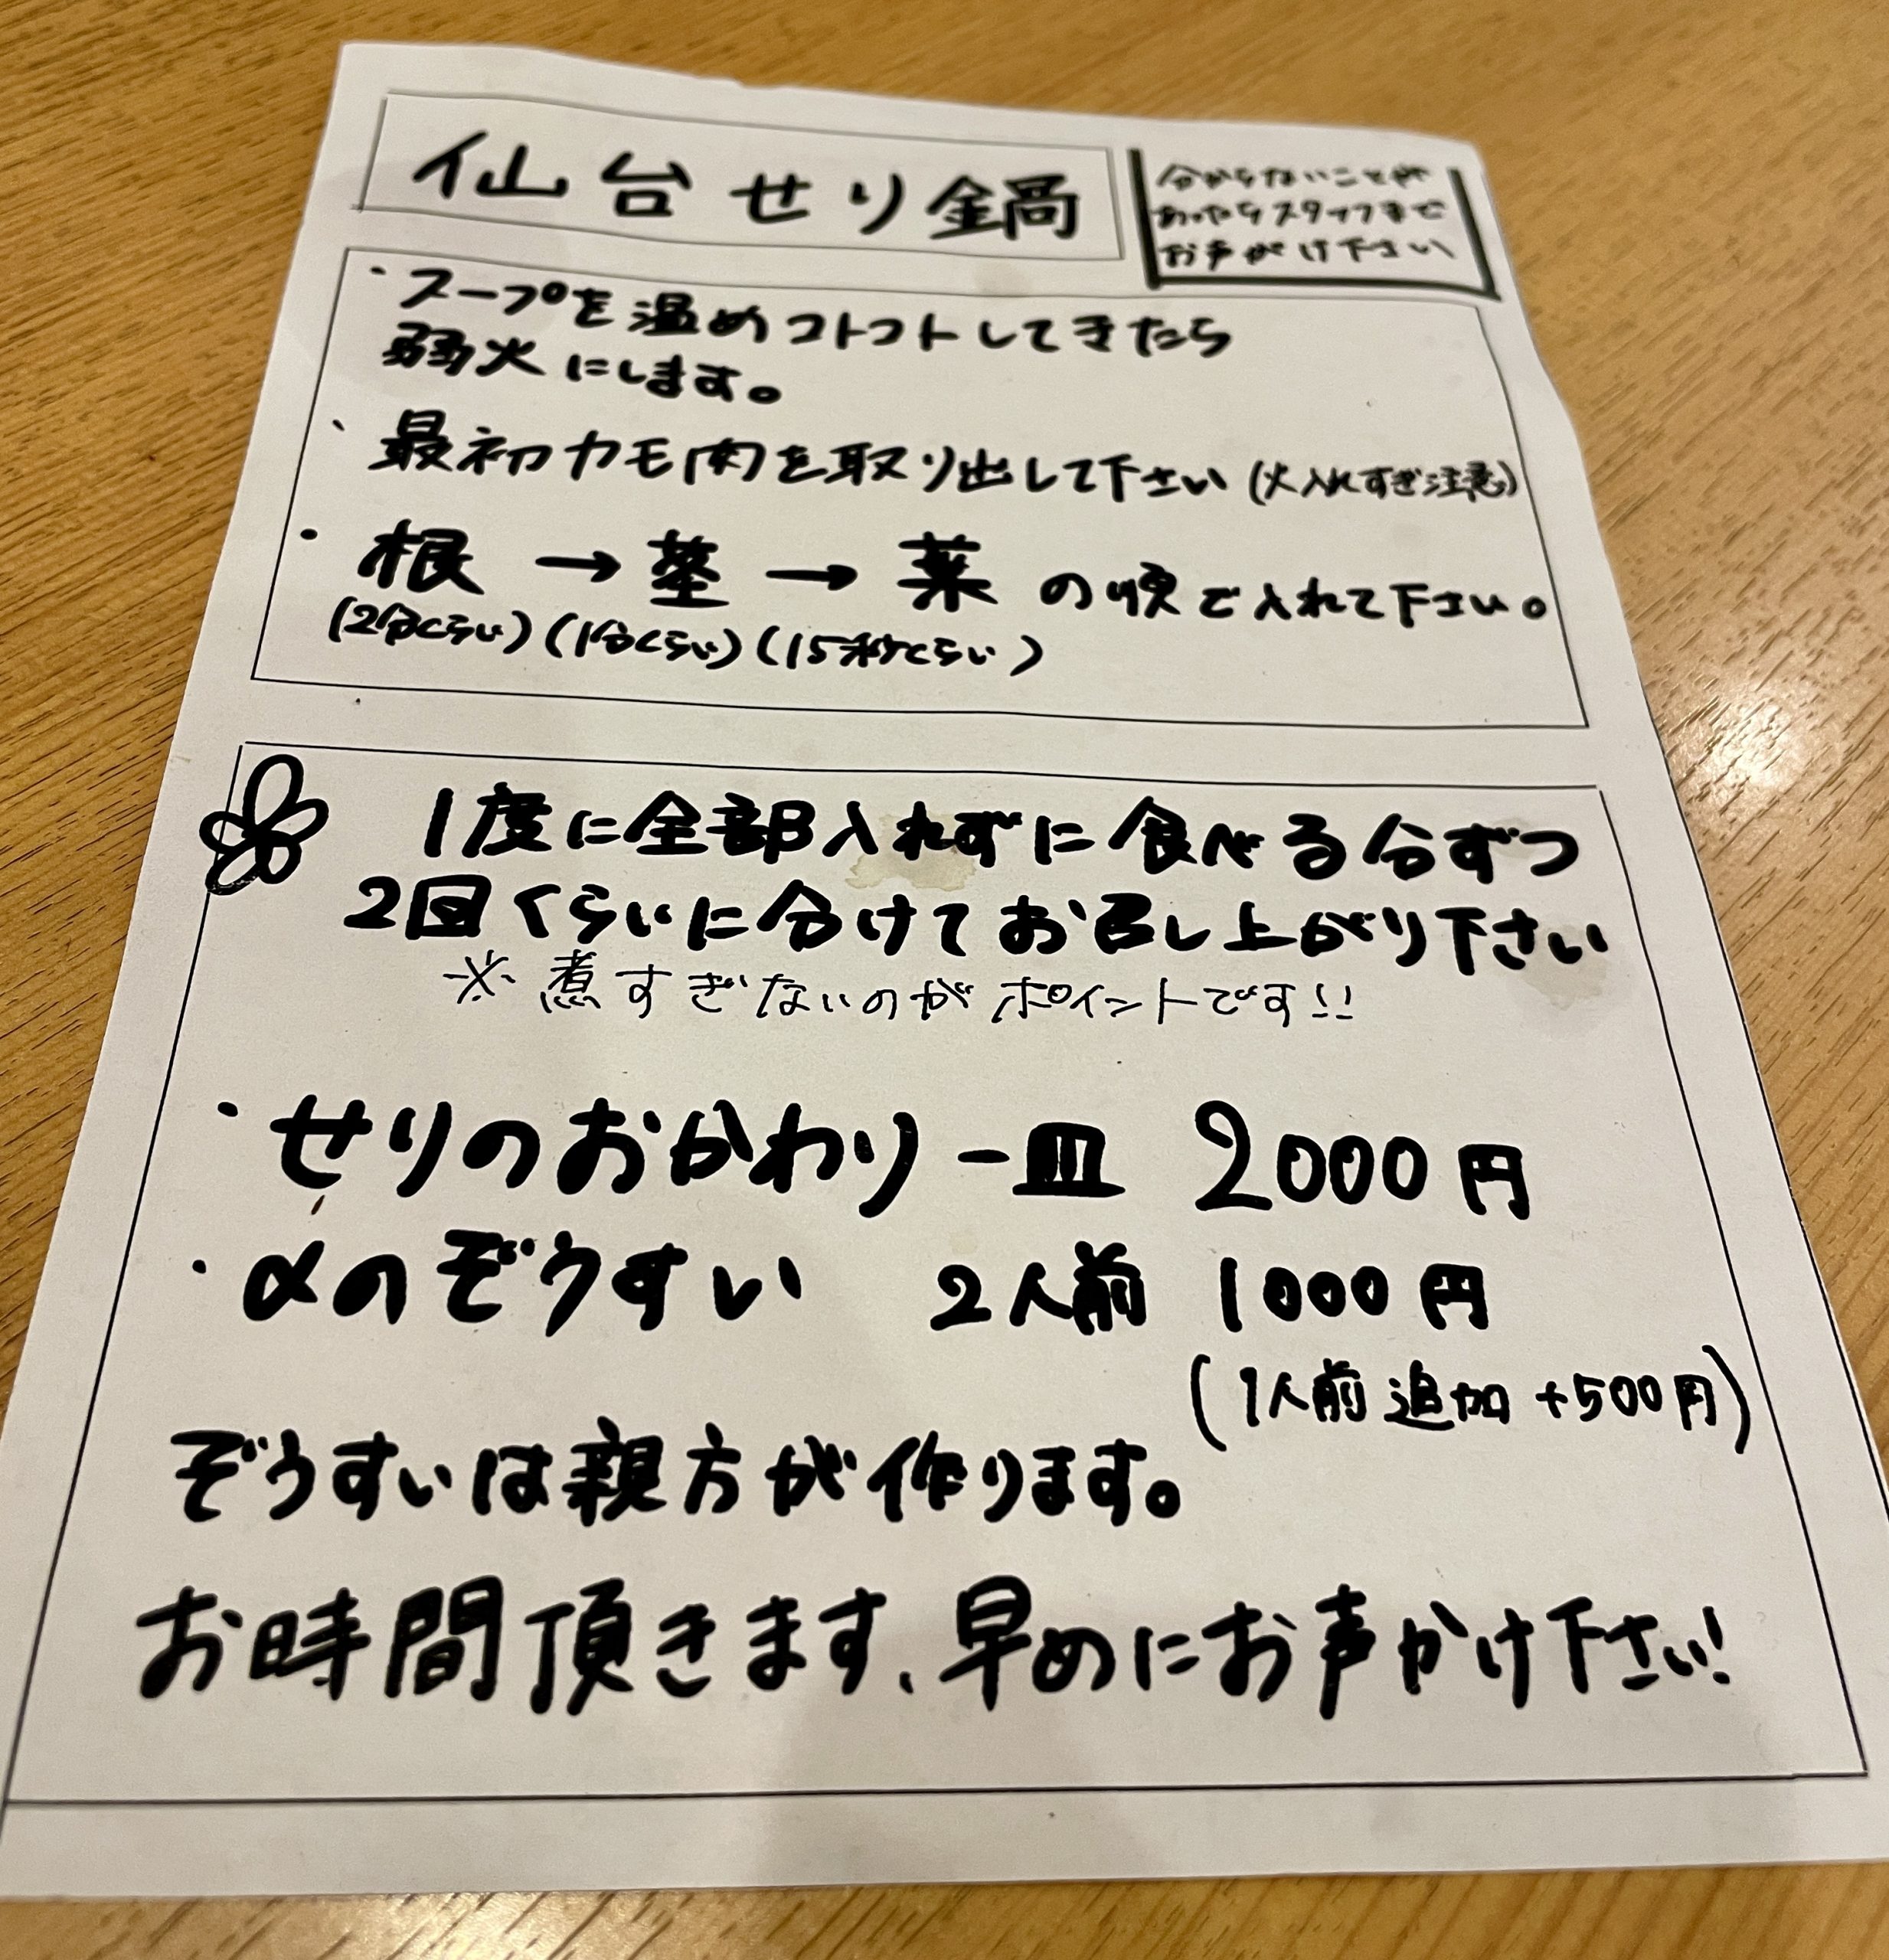 仙台せり鍋
分からないことが
あったらスタッフまで
お声がけ下さい
・スープを温めコトコトしてきたら
弱火にします。
・最初カモ肉を取り出して下さい(火入れすぎ注意)
・根→茎→葉の順で入れて下さい。
(2分くらい)(1分くらい)(15秒くらい)
1度に全部入れずに食べる分ずつ
2回くらいに分けてお召し上がり下さい
※煮すぎないのがポイントです!!
・せりのおかわり一皿 2000円
・〆のぞうすい 2人前 1000円
(1人前追加+500円)
ぞうすいは親方が作ります。
お時間頂きます、早めにお声かけ下さい!